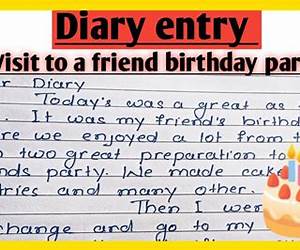 Diary entry
Visit to a friend birthday par
r Diary
Today's was a great as
. It was my friend's birthd
re we enjoyed a lot from t
o two great preparation to
ends party. We made cake
tries and many other.
Then I wer
change and go to my